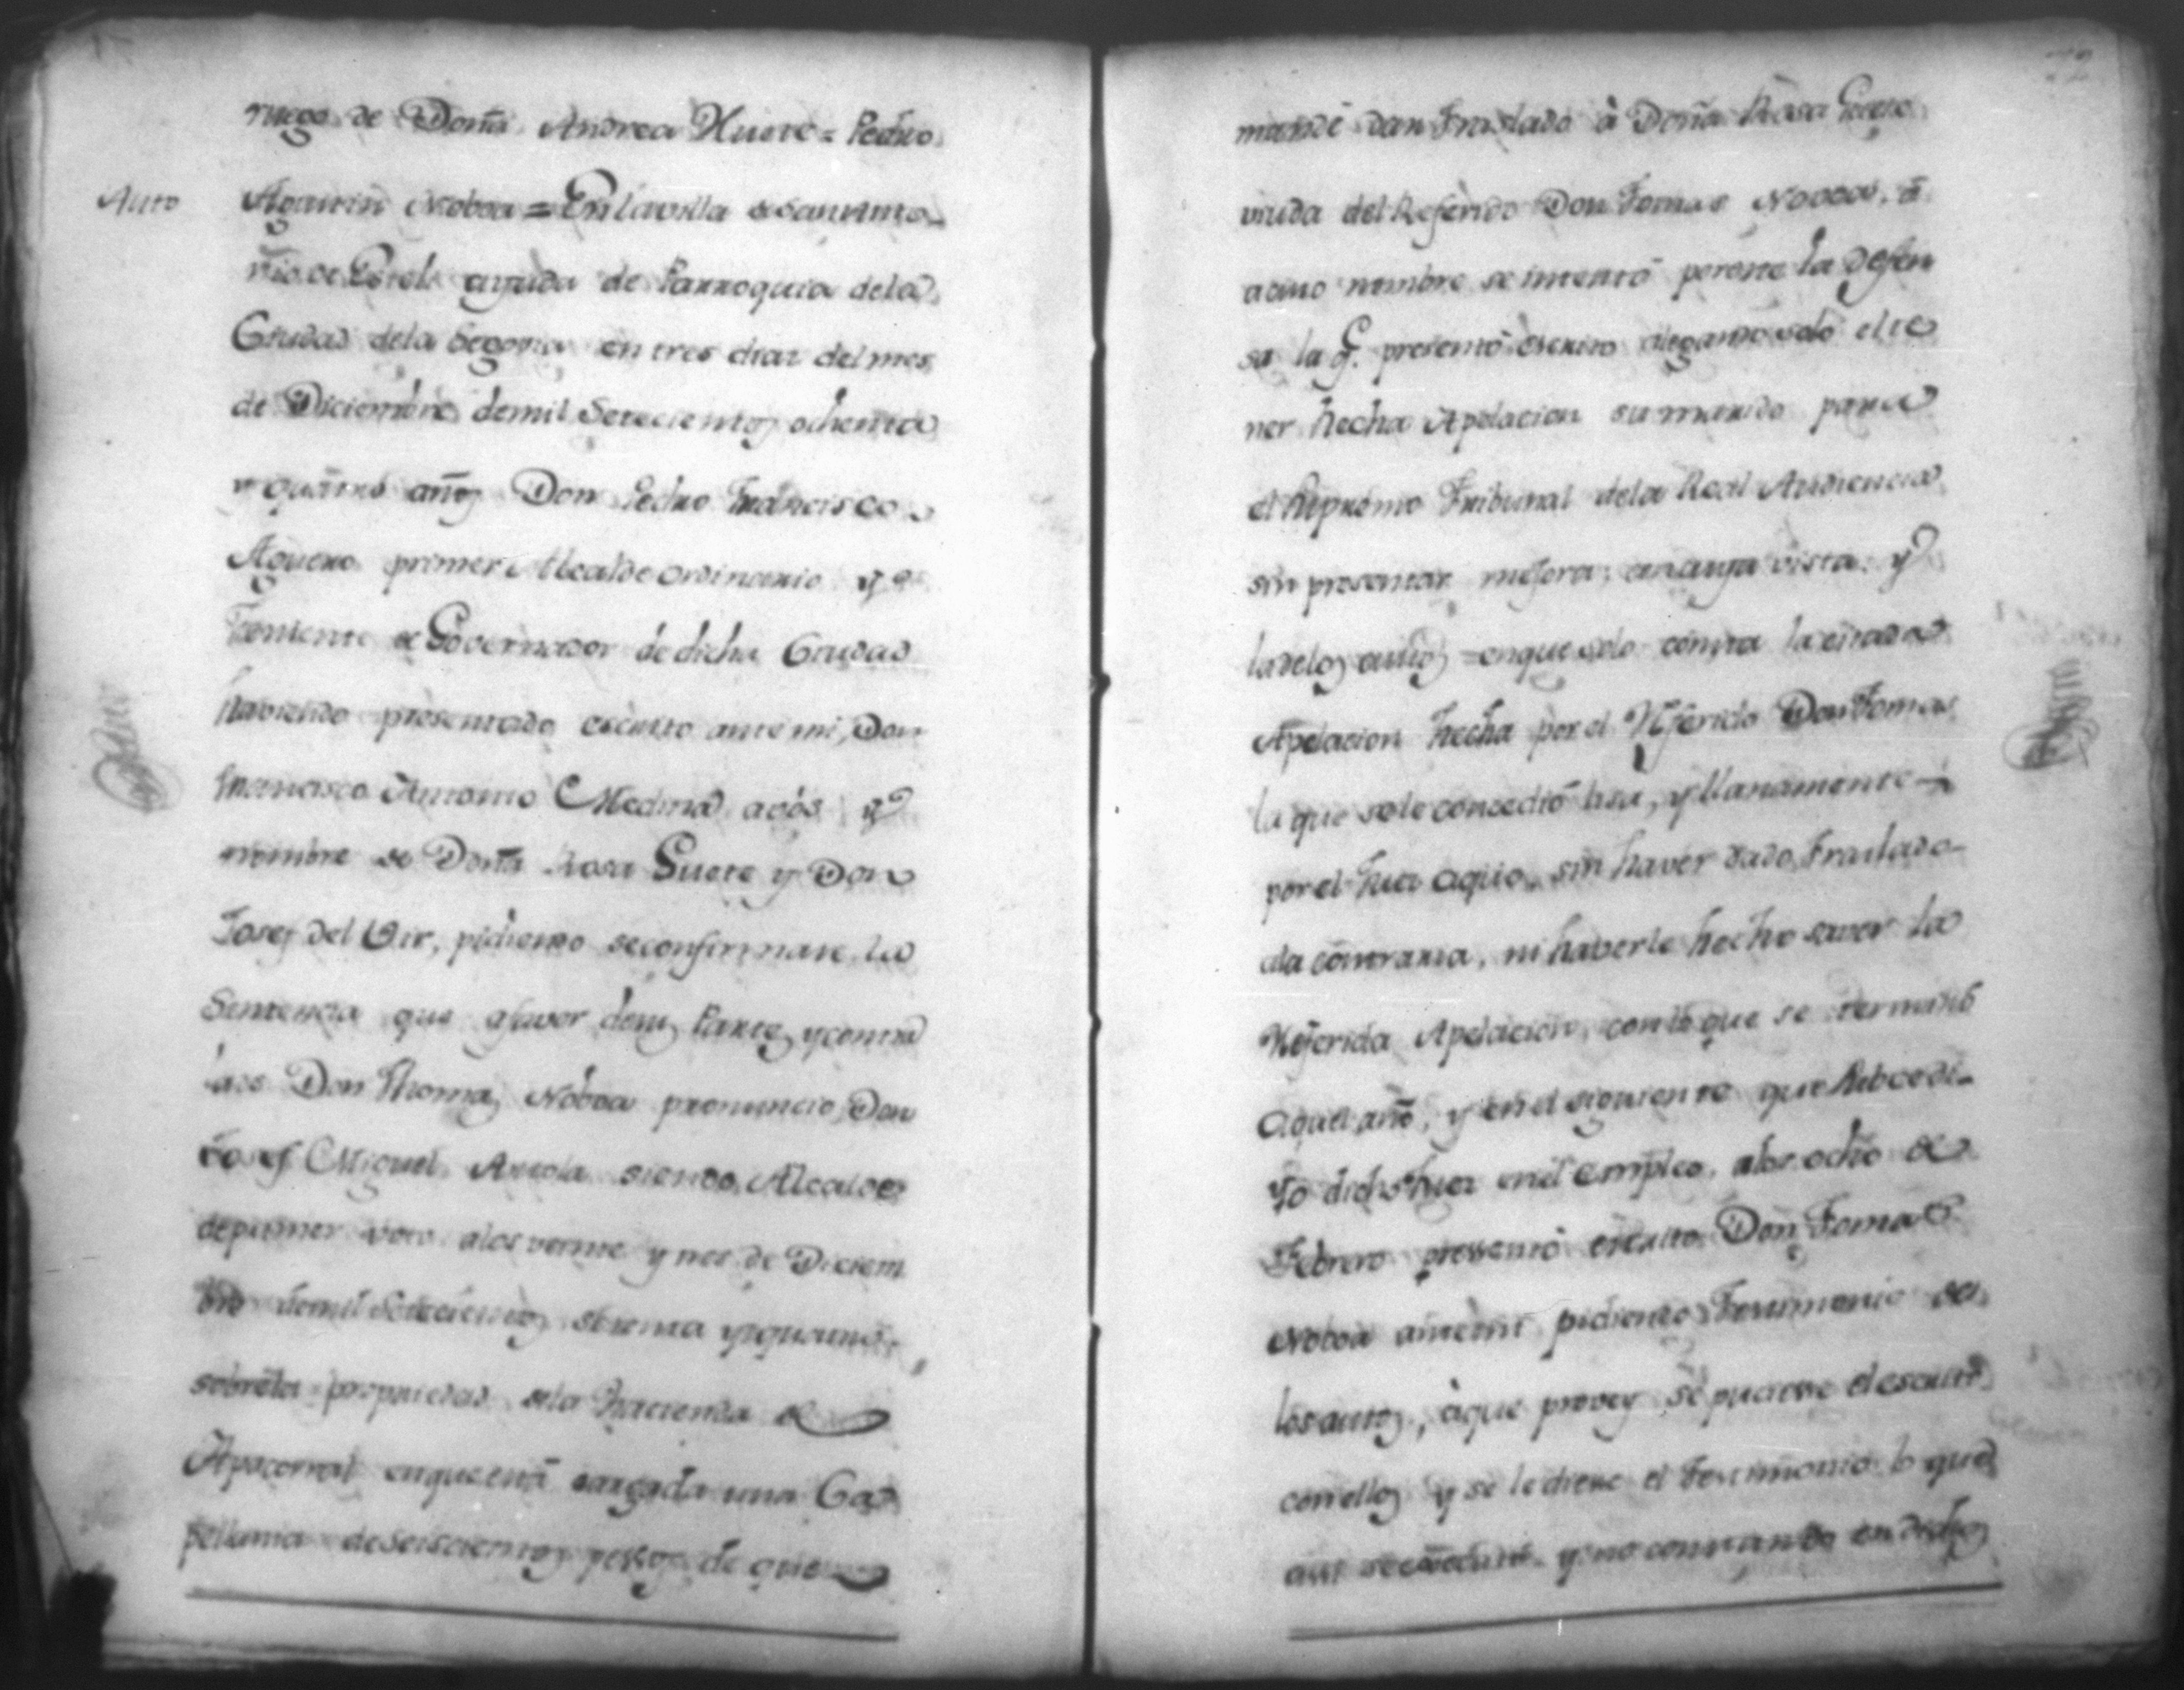 ruego de Doña Andrea Huete = Pedro
Auto
Agustin Noboa = En la villa de San Anto
nio de Esteli ayuda de Parroquia dela
Ciudad dela Segovia en tres dias del mes
de Diciembre demil Setecientos ochenta
y quatro años Don Pedro Francisco
Aguero primer Alcalde ordinario y
Teniente de Governador de dicha Ciudad
haviendo presentado escrito ante mi, Don
Francisco Antonio Medina a vós y
nombre de Doña Rosa Guete y Don
Josef del , pidiendo se confirmase la
Sentencia que afavor de sus Partes, y contra
Don Thomas Noboa pronuncio, Don
Josef Miguel Areola siendo Alcalde
de primer voto alos veinte y tres de Diciem
bre demil Setecientos setenta y quatro
sobre la propriedad dela Hacienda de
Apacorral en que está cargada una Ca
pellania de Seiscientos pessos de que
mandé dar Traslado à Doña Rosa
viuda del Referido Don Tomas Noboa, â
acuio nombre se intentó ponerse la defen
sa la q. presentó escrito alegando solo el te
ner hecha Apelacion su marido para
el Supremo Tribunal dela Real Audiencia
sin presentar mejora; en cuya vista y
la delos autos en que solo consta la citada
Apelacion hecha por el Referido Don Tomas
la que sele concedió lisa, y llanamente
por el Juez aquio, sin haver dado Traslado
ala contraria, ni haverle hecho saver la
Referida Apelacion, con lo que se terminó
aquel año, y en el siguiente que subcedi
Yo dicho Juez en el Empleo, alos ocho de
Febrero presentó escrito Don Tomas
Noboa ante mi pidiendo Testimonio de
los autos, à que provey se pusiese el escrito
con ellos y se le diese el Testimonio lo que
assi se executó y no constando en dichos